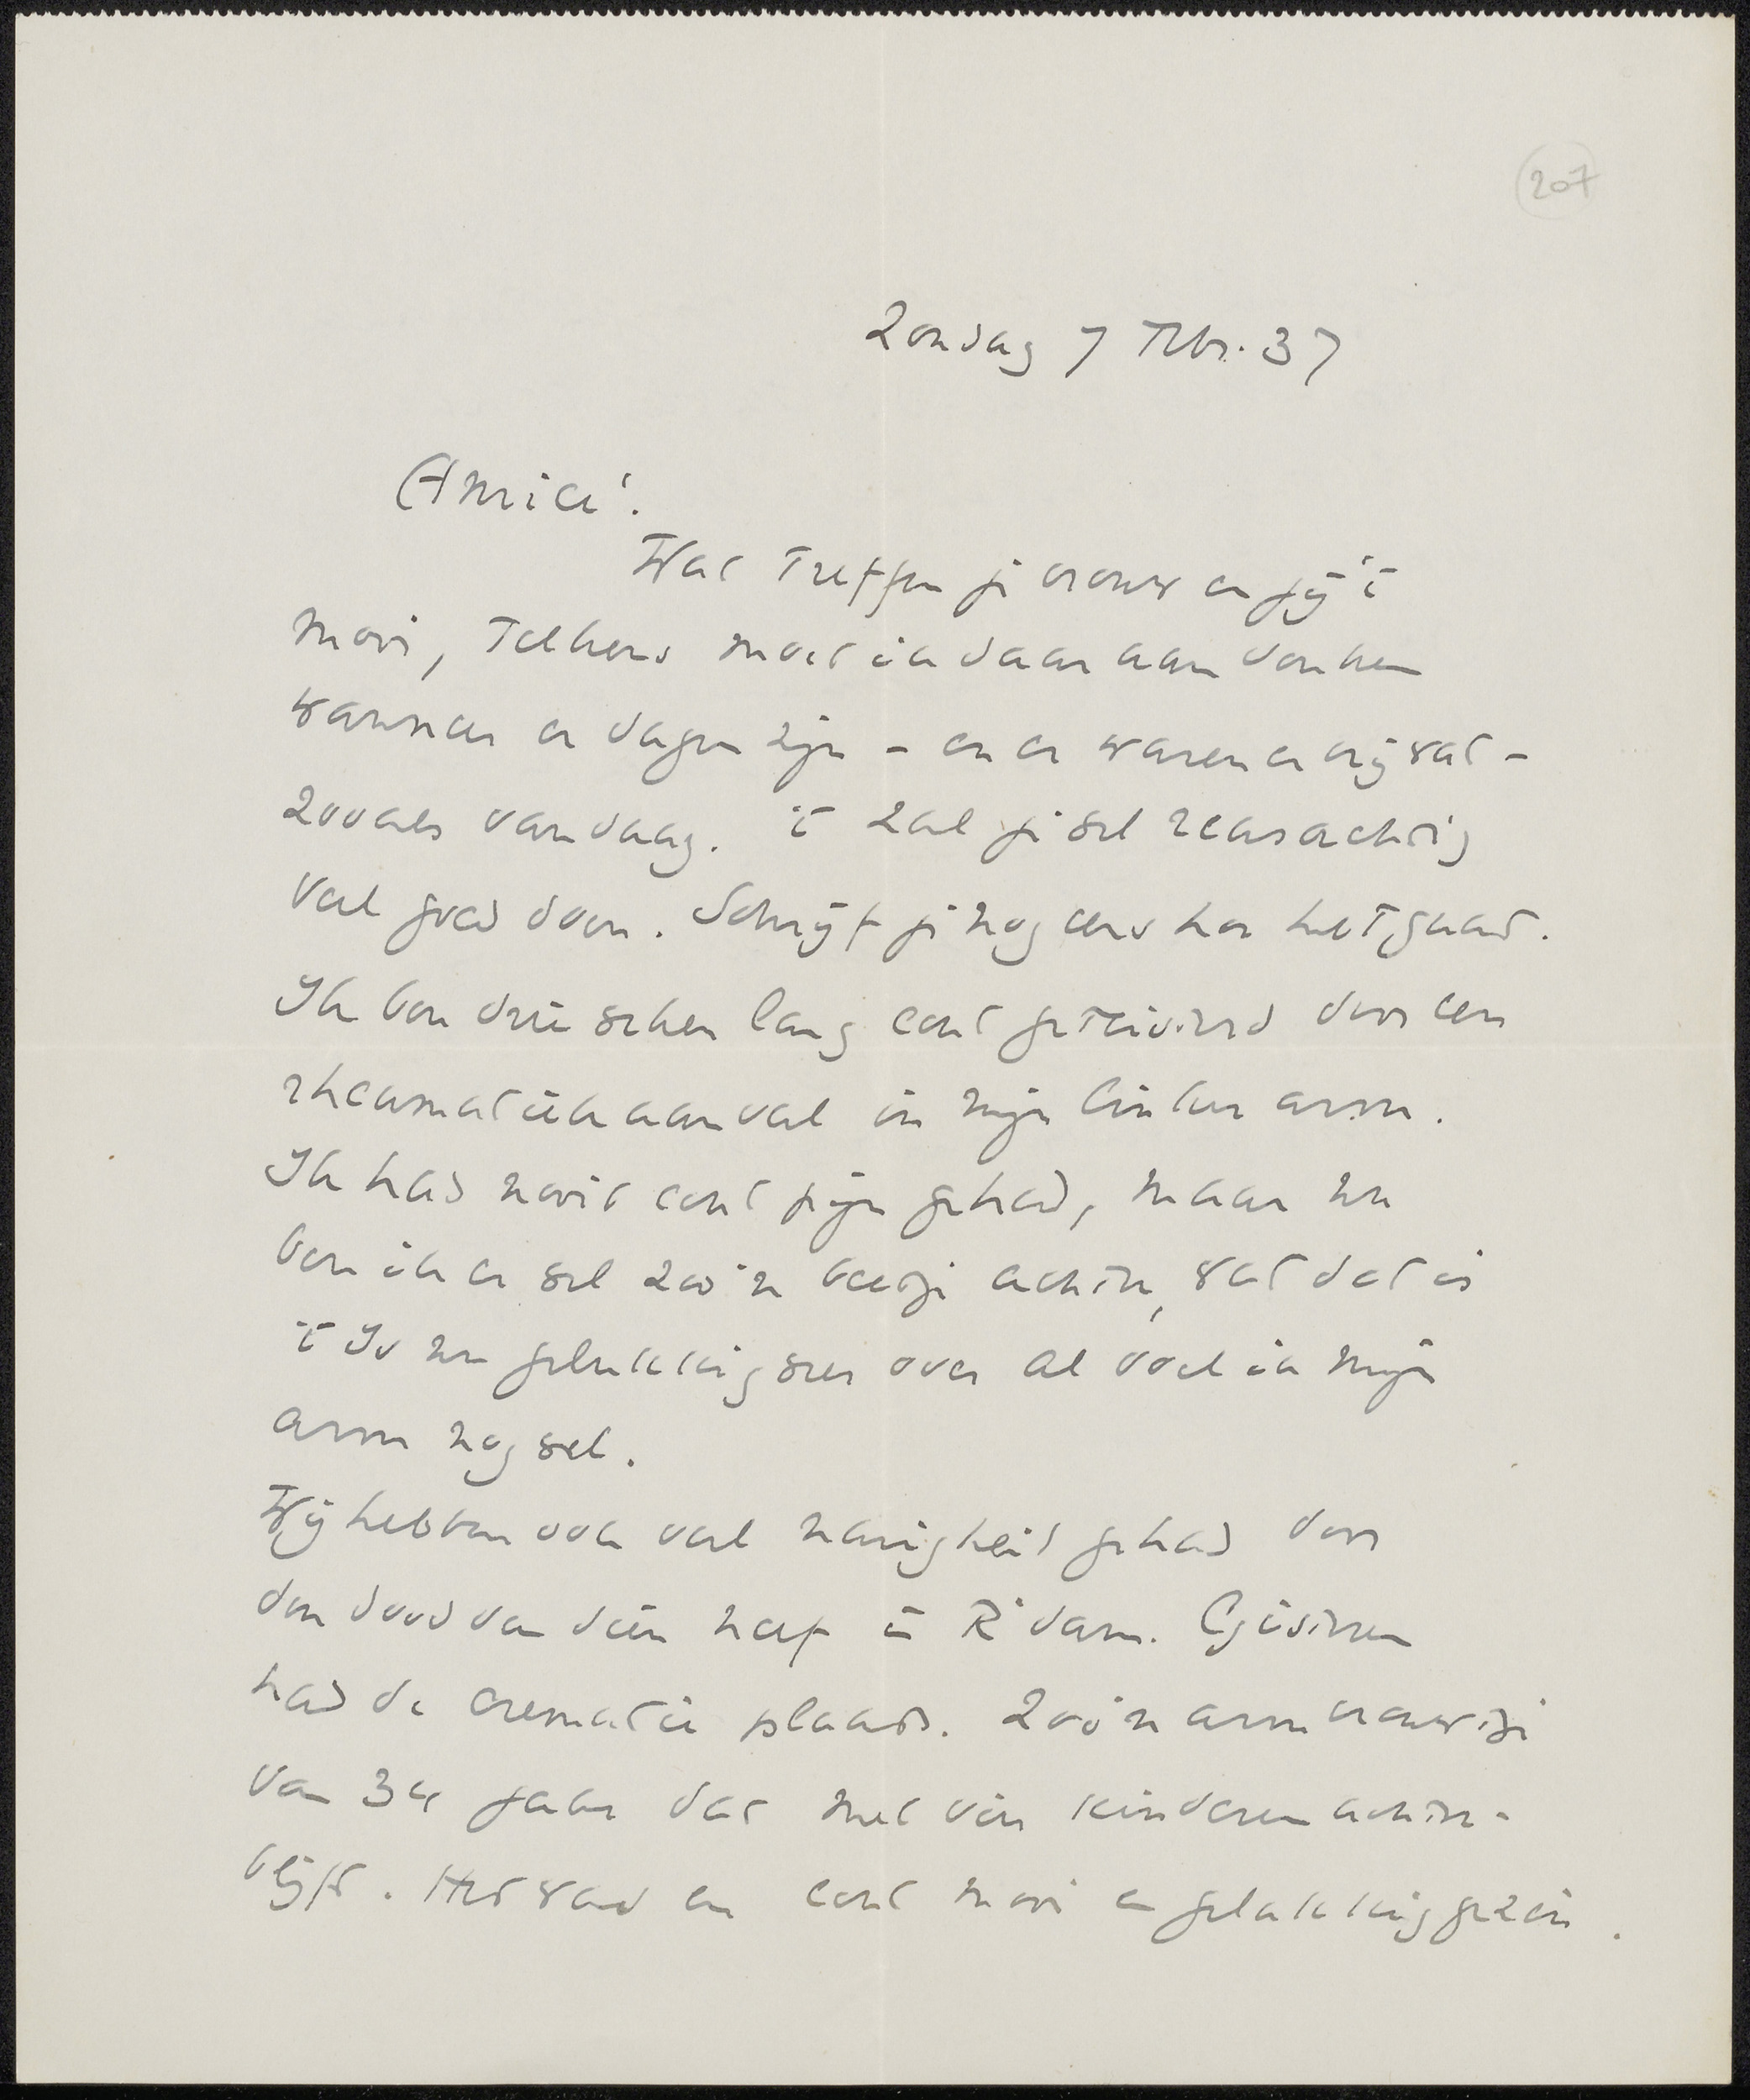 207
Zondag 7 Febr. 37
Amice!
Wat treffen je vrouw en jij 't
mooi, telkens moet ik daar aan denken
wanneer er dagen zijn – en er waren er vrij wat –
zooals vandaag. 't Zal je wel reusachtig
veel goed doen. Schrijf je nog eens hoe het gaat.
Ik ben drie weken lang echt geteisterd door een
rheumatiekaanval in mijn linker arm.
Ik had nooit echt pijn gehad, maar nu
ben ik er wel zoo'n beetje achter, wat dat is
't Is nu gelukkig weer over al voel ik mijn
arm nog wel.
Wij hebben ook veel narigheid gehad door
den dood van dien neef in R'dam. Gisteren
had de crematie plaats. Zoo'n arm vrouwtje
van 34 jaar dat met vier kinderen achter-
blijft. Het was een echt mooi en gelukkig gezin.